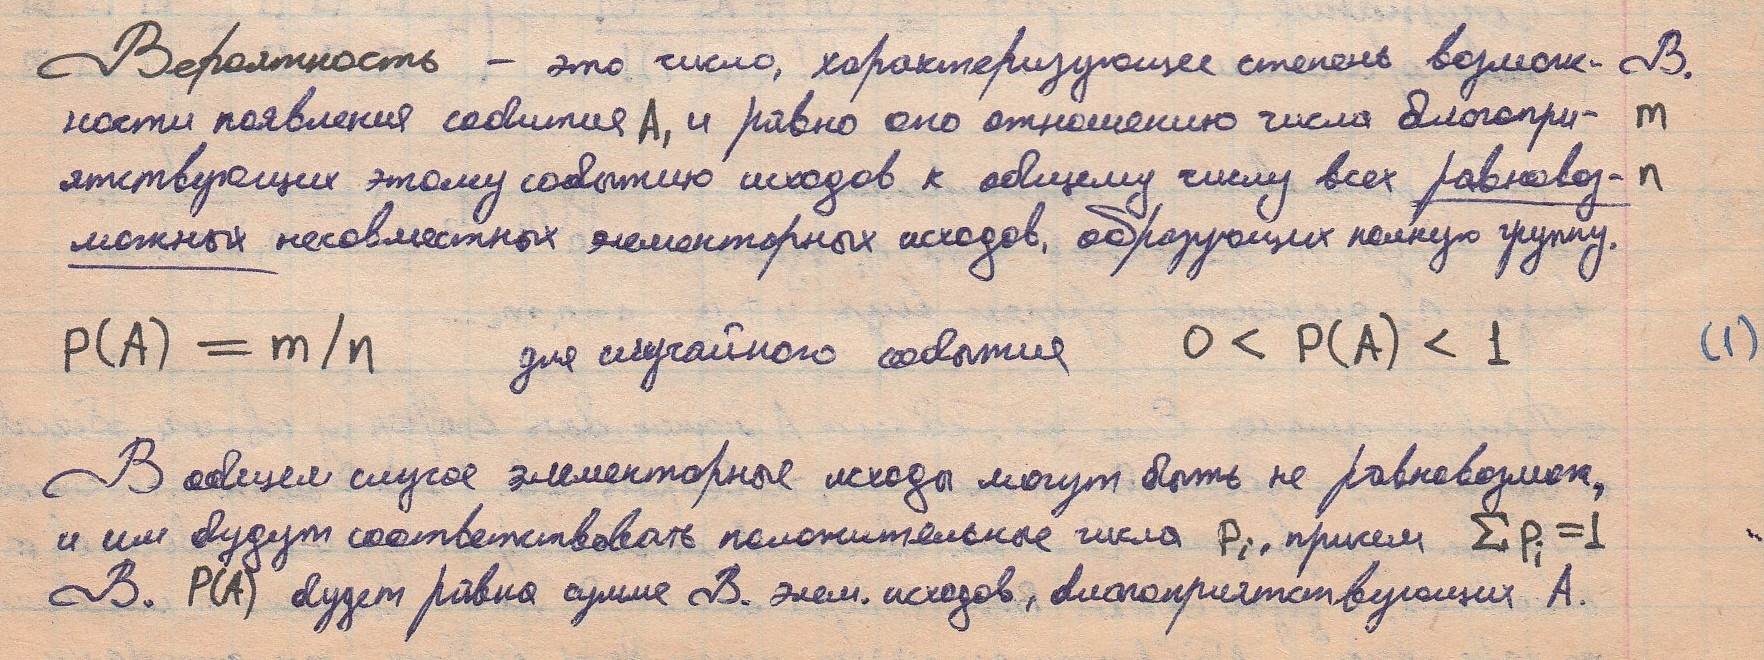 Вероятность – это число, характеризующее степень возмож- В.
ности появления события A, и равно оно отношению числа благопри- m
ятствующих этому событию исходов к общему числу всех равновоз- n
можных несовместных элементарных исходов, образующих полную группу.
P(A) = m/n для случайного события 0 < P(A) < 1 (1)
В общем случае элементарные исходы могут быть не равновозмож,
и им будут соответствовать положительные числа pi, причем Σ pi = 1
В. P(A) будет равна сумме В. элем. исходов, благоприятствующих A.